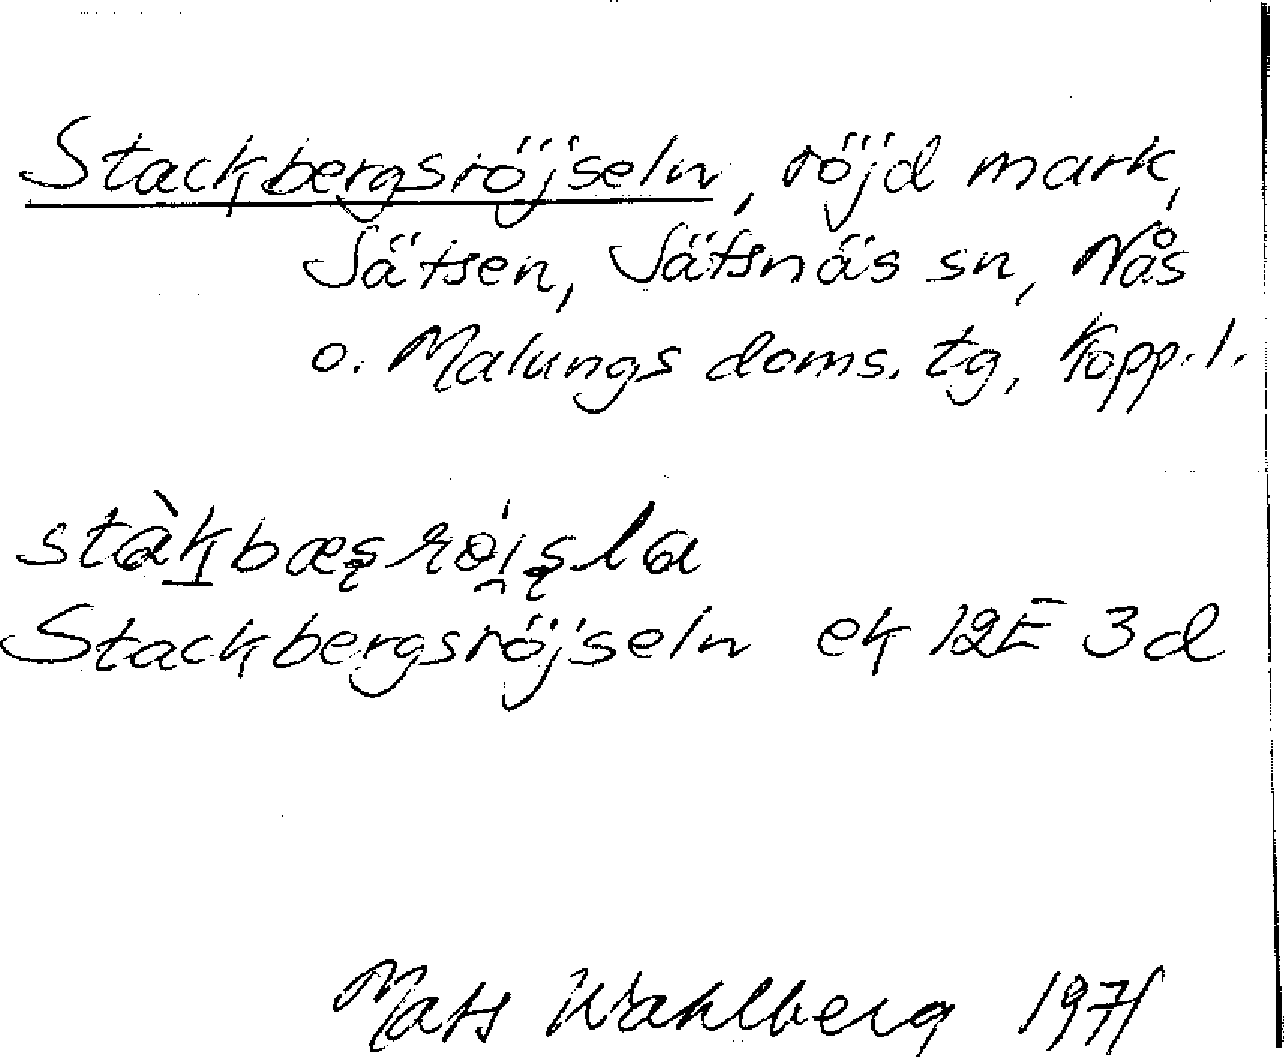 Stackbergsröjseln, röjd mark,
Sätsen, Sätsnäs sn, Nås
o. Malungs doms. tg, Kopp. l.
stàk̠bæʂrö́i̯ʂla
Stackbergsröjseln ek 12E 3d
Mats Wahlberg 1971